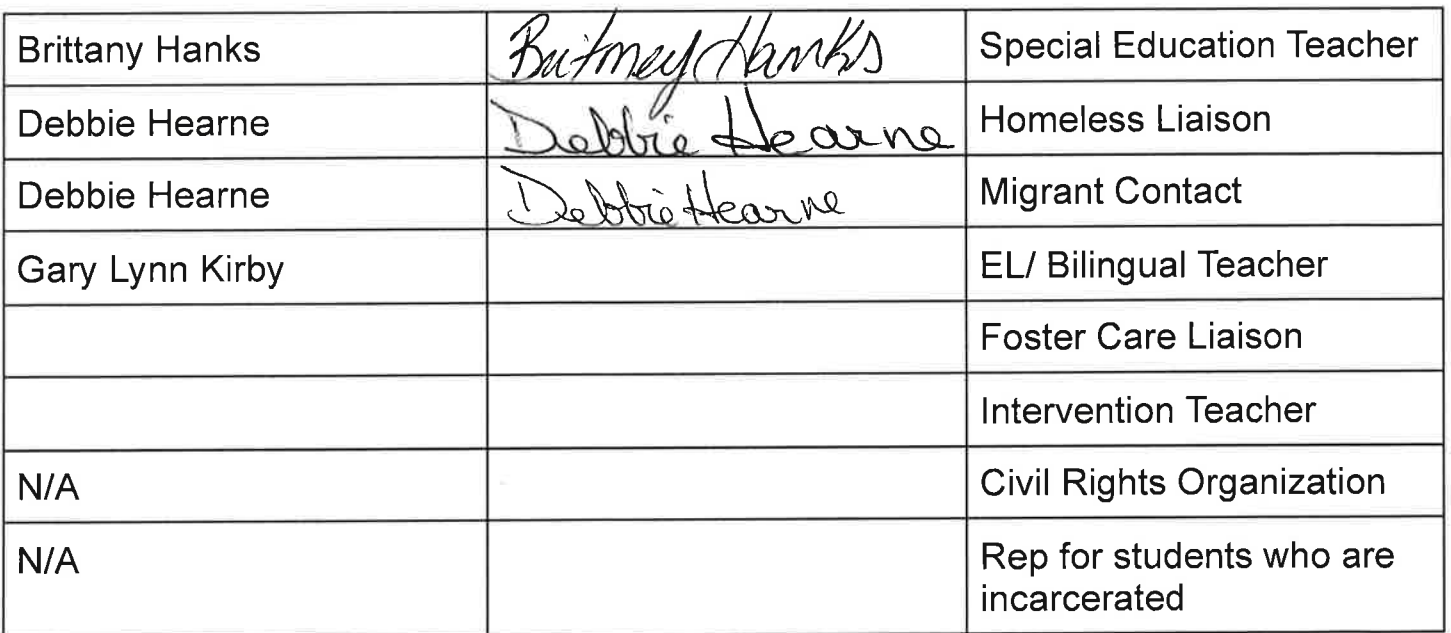 Brittany Hanks Britney Hanks Special Education Teacher
Debbie Hearne Debbie Hearne Homeless Liaison
Debbie Hearne Debbie Hearne Migrant Contact
Gary Lynn Kirby EL/ Bilingual Teacher
Foster Care Liaison
Intervention Teacher
N/A Civil Rights Organization
N/A Rep for students who are
incarcerated